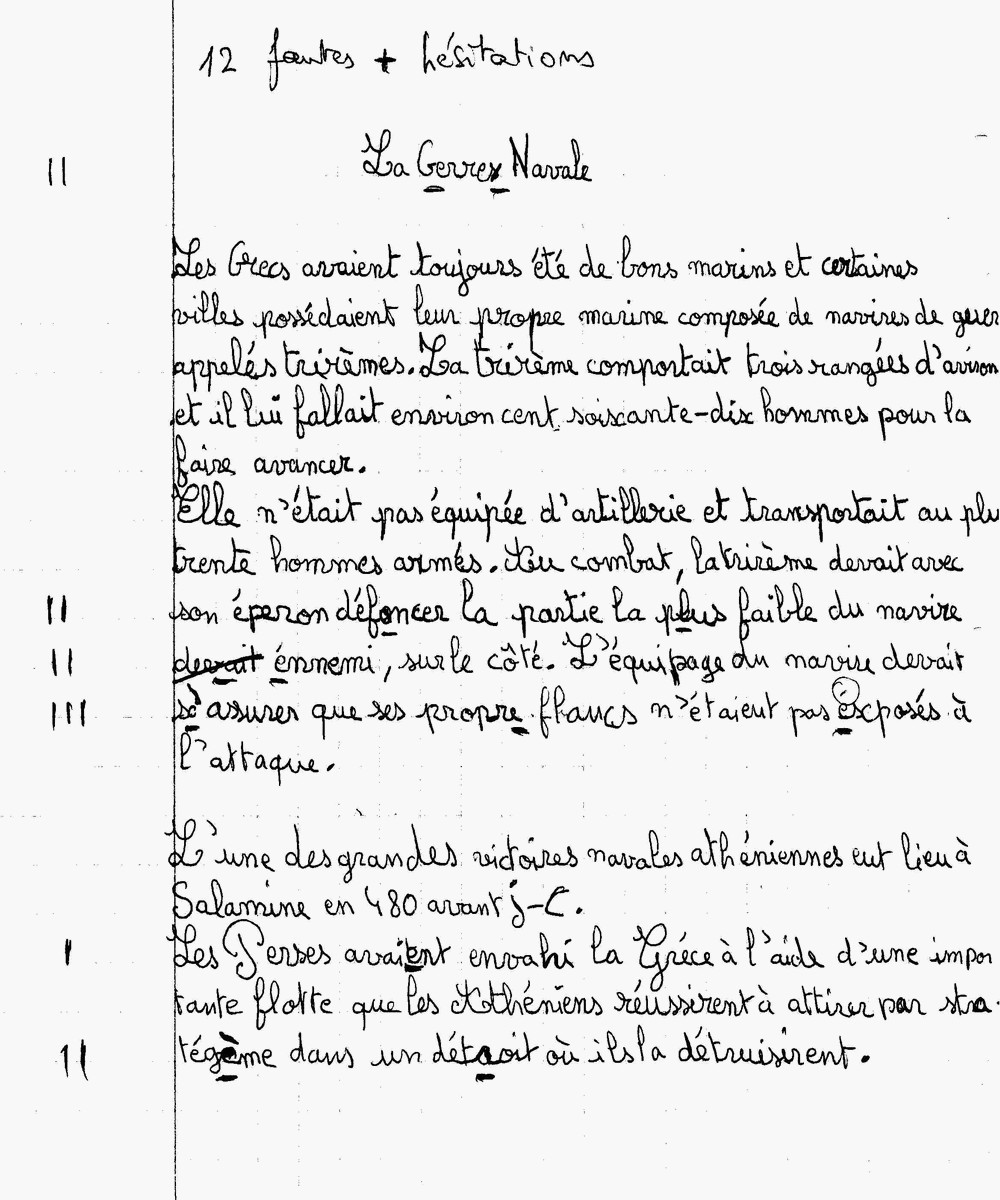 12 fautes + hésitations
II
La Gerrex Navale
Les Grecs avaient toujours été de bons marins et certaines
villes possédaient leur propre marine composée de navires de guer
appelés trirèmes. La trirème comportait trois rangées d'aviron
et il lui fallait environ cent soixante-dix hommes pour la
faire avancer.
Elle n'était pas équipée d'artillerie et transportait au plu
trente hommes armés. Au combat, la trirème devait avec
II son éperon défoncer la partie la plus faible du navire
II devait énnemi, sur le côté. L'équipage du navire devait
III s'assurer que ses propre flancs n'étaient pas éxposés à
l'attaque.
L'une des grandes victoires navales athéniennes eut lieu à
Salamine en 480 avant j-C.
I Les Perses avaient envahi la Gréce à l'aide d'une impor
tante flotte que les Athéniens réussirent à attirer par stra-
II tégème dans un détroit où ils la détruisirent.